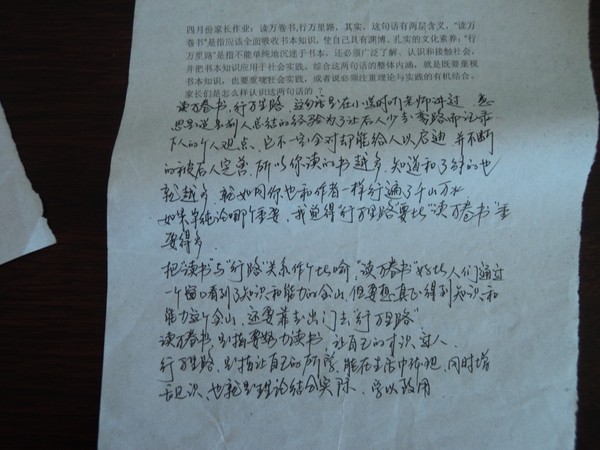 四月份家长作业：读万卷书,行万里路，其实，这句话有两层含义，“读万
卷书”是指应该全面吸收书本知识，使自己具有渊博、扎实的文化素养；“行
万里路”是指不能单纯地沉迷于书本，还必须广泛了解、认识和接触社会，
并把书本知识应用于社会实践。综合这两句话的整体内涵，就是既要重视
书本知识，也要重视社会实践，或者说必须注重理论与实践的有机结合。
家长们是怎么样认识这两句话的？
读万卷书，行万里路，这句话是在小学时听老师讲过，意
思是说书是别人总结的经验为了让后人少走弯路而记录
下人的个人观点。它不一定全对却能给人以启迪 并不断
的被后人完善，所以你读的书越多，知道和了解的也
就越多，就如同你也和作者一样行遍了千山万水
如果单纯论哪个重要，我觉得“行万里路”要比“读万卷书”重
要得多。
把“读书”与“行路”关系作个比喻，“读万卷书”好比人们通过
一个窗口看到了知识和能力的金山，但要想真正得到知识和
能力这个金山，还要靠走出门去“行万里路”
读万卷书，是指要努力读书，让自己的才识过人。
行万里路，是指让自己的所学，能在生活中体现，同时增
长见识，也就是理论结合实际，学以致用